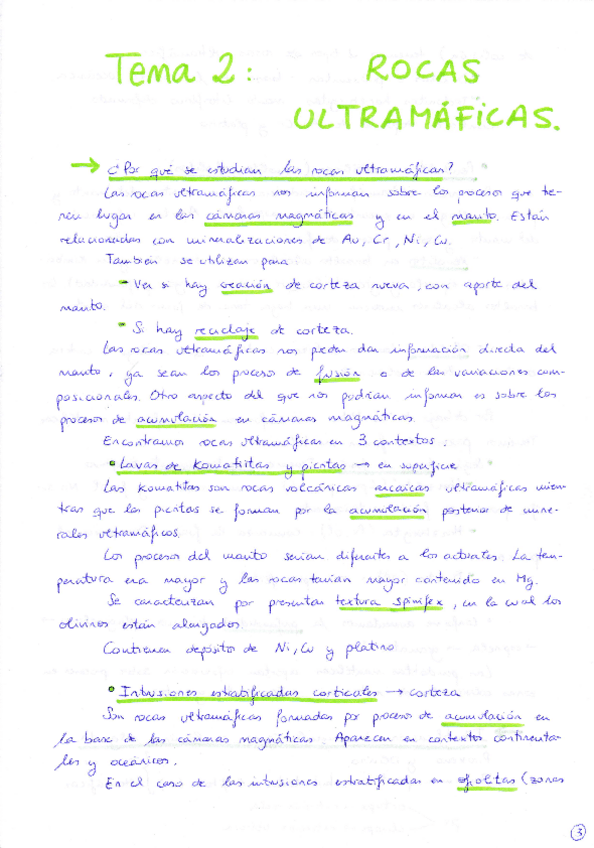 Tema 2: ROCAS
ULTRAMÁFICAS.
→ ¿Por qué se estudian las rocas ultramáficas?
Las rocas ultramáficas nos informan sobre los procesos que tie-
nen lugar en las cámaras magmáticas y en el manto. Están
relacionadas con mineralizaciones de Au, Cr, Ni, Cu.
También se utilizan para:
- Ver si hay creación de corteza nueva, con aporte del
manto.
- Si hay reciclaje de corteza.
Las rocas ultramáficas nos pueden dar información directa del
manto, ya sean los procesos de fusión o de las variaciones com-
posicionales. Otro aspecto del que nos podrían informar es sobre los
procesos de acumulación en cámaras magmáticas.
Encontramos rocas ultramáficas en 3 contextos:
• Lavas de Komatiitas y picritas → en superficie
Las komatiitas son rocas volcánicas arcaicas ultramáficas mien-
tras que las picritas se forman por la acumulación posterior de mine-
rales ultramáficos.
Los procesos del manto serían diferentes a los actuales. La tem-
peratura era mayor y las rocas tenían mayor contenido en Mg.
Se caracterizan por presentar textura spinifex, en la cual los
olivinos están alargados.
Contienen depósitos de Ni, Cu y platino
• Intrusiones estratificadas corticales → corteza
Son rocas ultramáficas formadas por procesos de acumulación en
la base de las cámaras magmáticas. Aparecen en contextos continenta-
les y oceánicos.
En el caso de las intrusiones estratificadas en ofiolitas (zonas
3